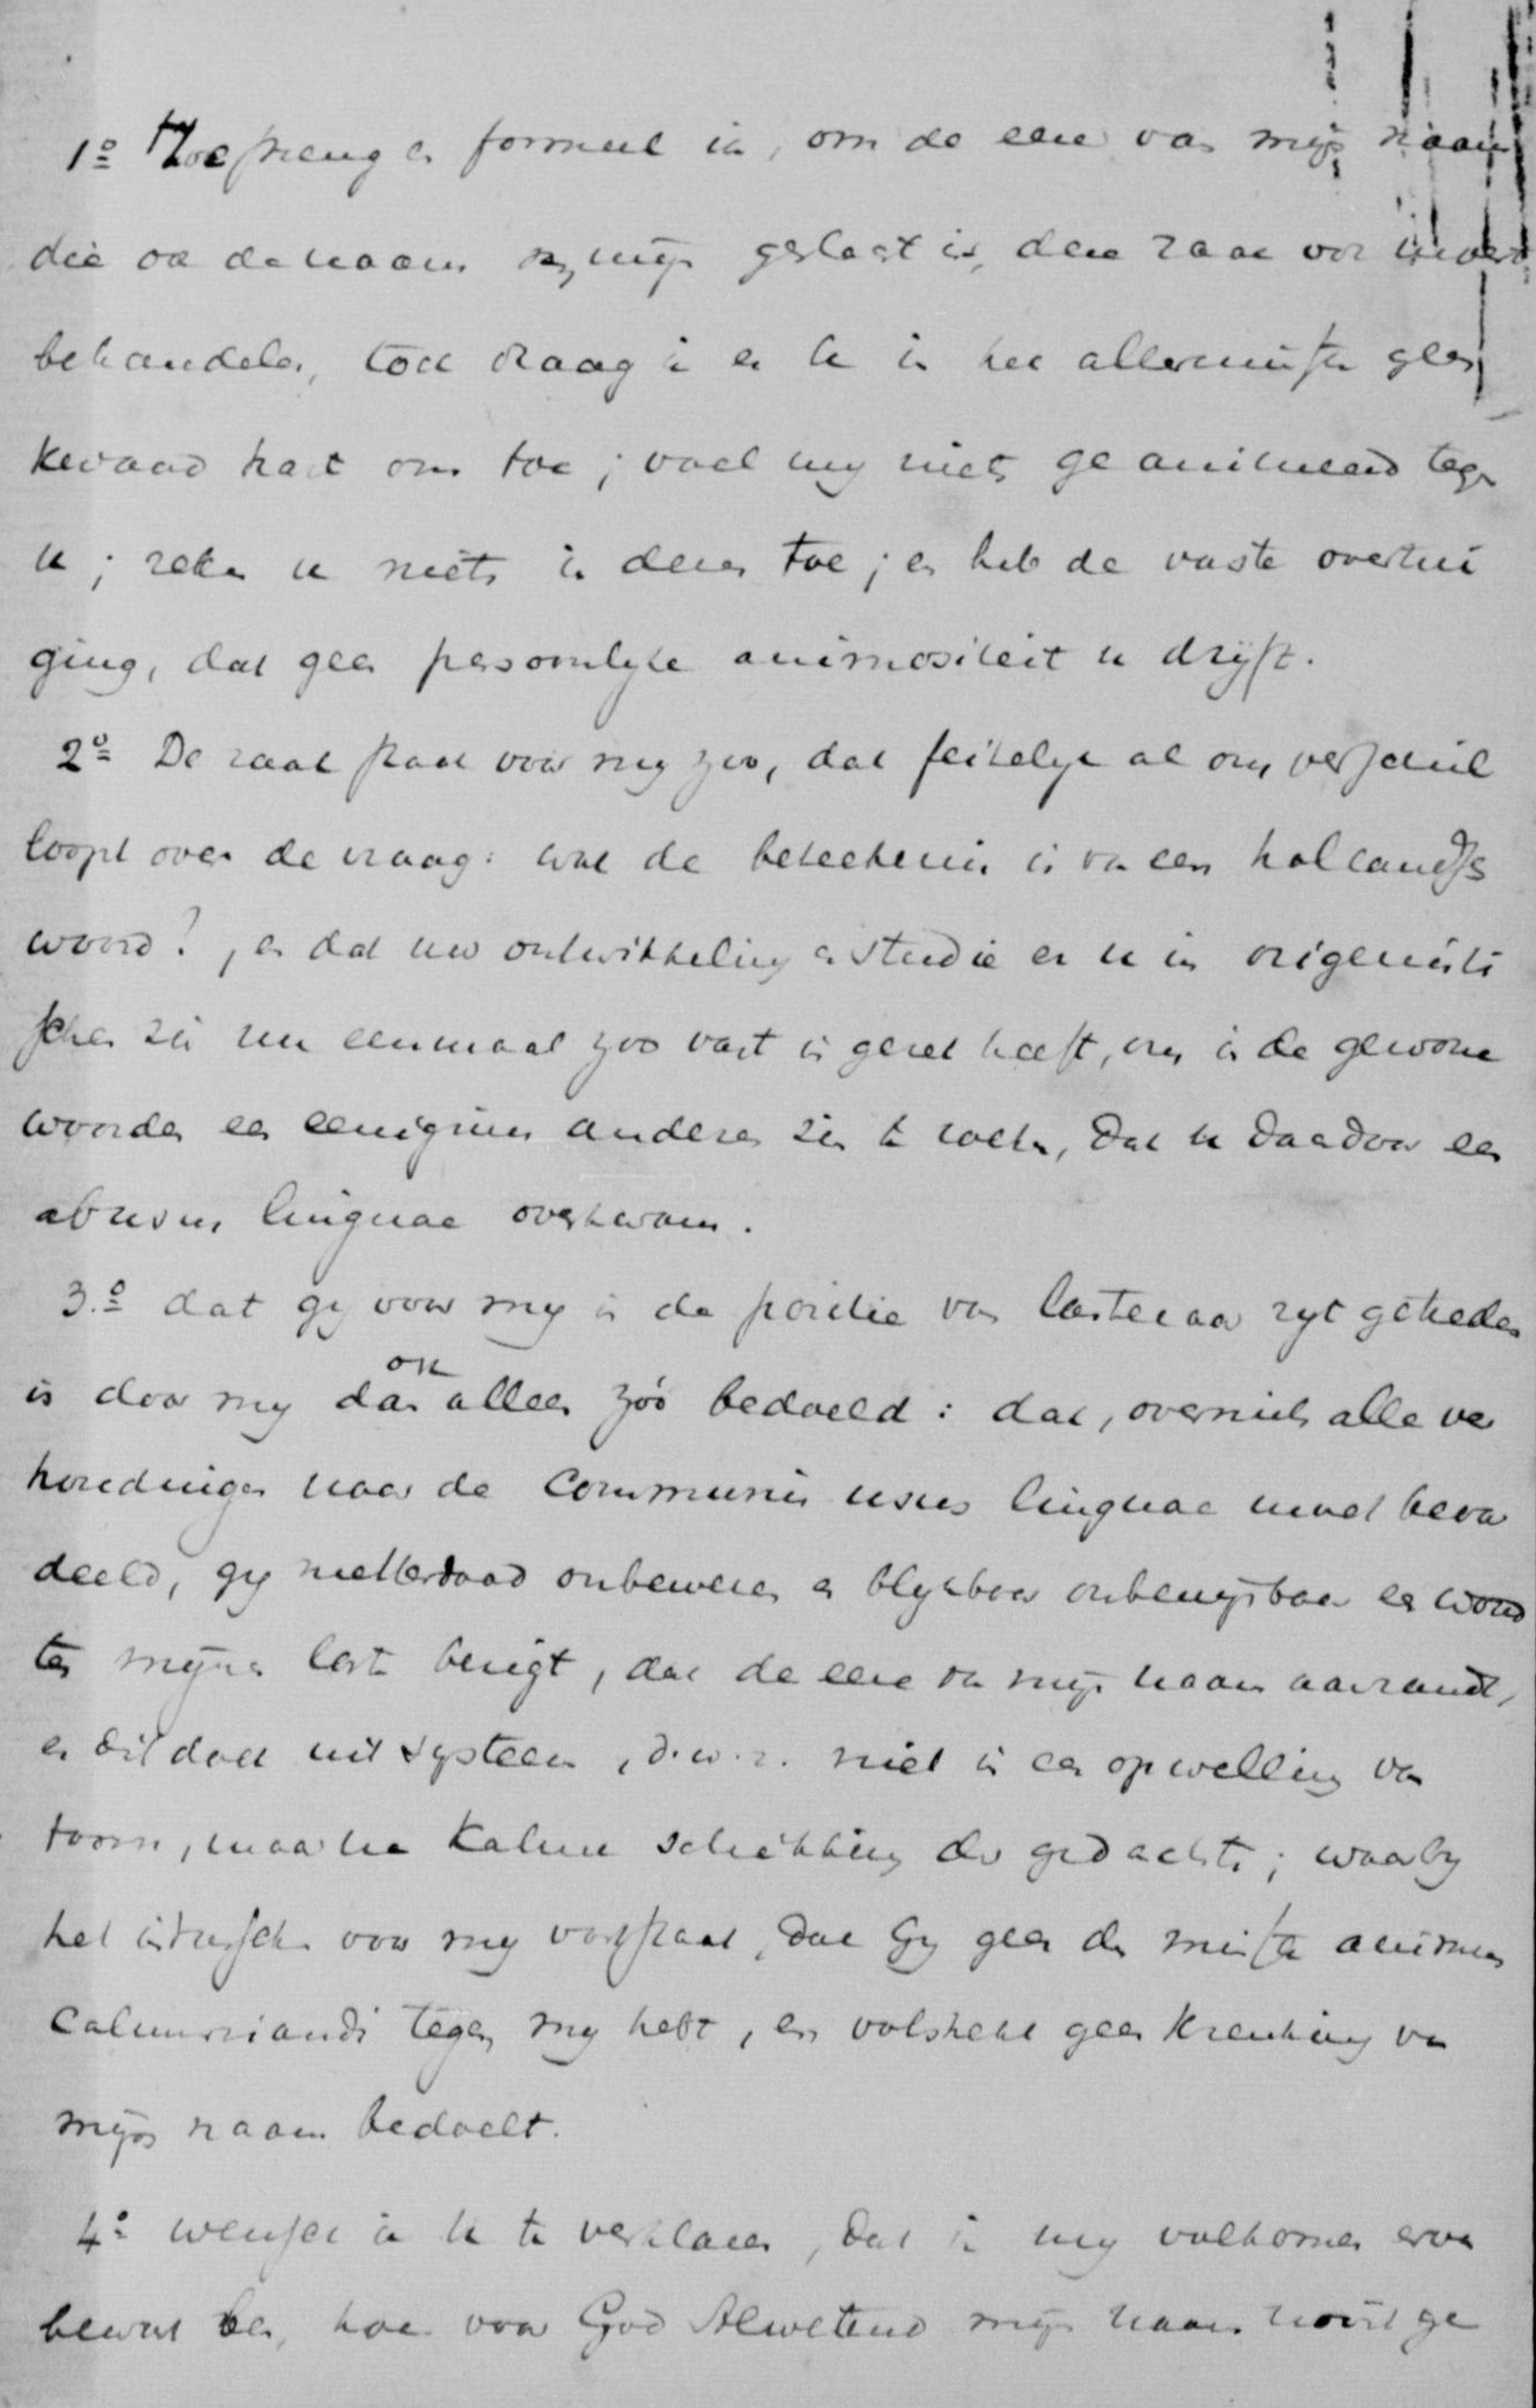 1º Hoe streng er formeel in, om de eere van mijn naam
die ook de naam van mijn geslacht is, deze zaak voor
behandelen, toch draag ik er u in het allerminste geen
kwaad hart om toe; voel my niets geanimeerd tegen
u; reken u niets in dezen toe; en heb de vaste overtui
ging, dat geen persoonlyke animositeit u dryft.
2º De zaak staat voor my zoo, dat feitelyk al ons verschil
loopt over de vraag: wat de beteekenis is van een hollandsch
woord?, en dat uw ontwikkeling en studie er u in origenisti
schen zin nu eenmaal zoo vast in gezet heeft, om in de gewone
woorden een eenigzins anderen zin te zoeken, dat u daardoor een
abusus linguae overkwam.
3.º dat gy voor my in de positie van lasteraar zyt getreden
is door my dan ook alleen zóó bedoeld: dat, overmits alle ver
houdingen naar de communis usus linguae moet beoor
deeld, gy metterdaad onbewezen en blykbaar onbewysbaar een woord
ten mynen laste bezigt, dat de eere van mijn naam aanrandt,
en dit doet uit systeem, d.w.z. niet in een opwelling van
toorn, maar na kalme schikking der gedachten; waarby
het intusschen voor my vaststaat, dat Gy geen den minsten animus
calumniandi tegen my hebt, en volstrekt geen krenking van
mijn naam bedoelt.
4º wensch ik u te verklaren, dat ik my volkomen ervan
bewust ben, hoe voor God Alwetend mijn naam nooit ge